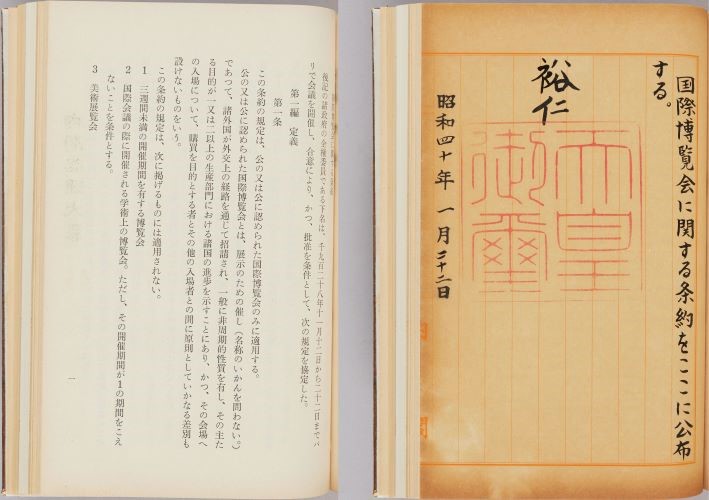 国際博覧会に関する条約をここに公布
する。
天皇
御璽
裕仁
昭和四十年一月二十二日
後記の諸政府の全権委員である下名は、千九百二十八年十一月十二日から二十二日までパ
リで会議を開催し、合意により、かつ、批准を条件として、次の規定を協定した。
第一編 定義
第一条
この条約の規定は、公の又は公に認められた国際博覧会のみに適用する。
公の又は公に認められた国際博覧会とは、展示のための催し(名称のいかんを問わない。)
であつて、諸外国が外交上の経路を通じて招請され、一般に非周期的性質を有し、その主た
る目的が一又は二以上の生産部門における諸国の進歩を示すことにあり、かつ、その会場へ
の入場について、購買を目的とする者とその他の入場者との間に原則としていかなる差別も
設けないものをいう。
この条約の規定は、次に掲げるものには適用されない。
1 三週間未満の開催期間を有する博覧会
2 国際会議の際に開催される学術上の博覧会。ただし、その開催期間が1の期間をこえ
ないことを条件とする。
3 美術展覧会
一